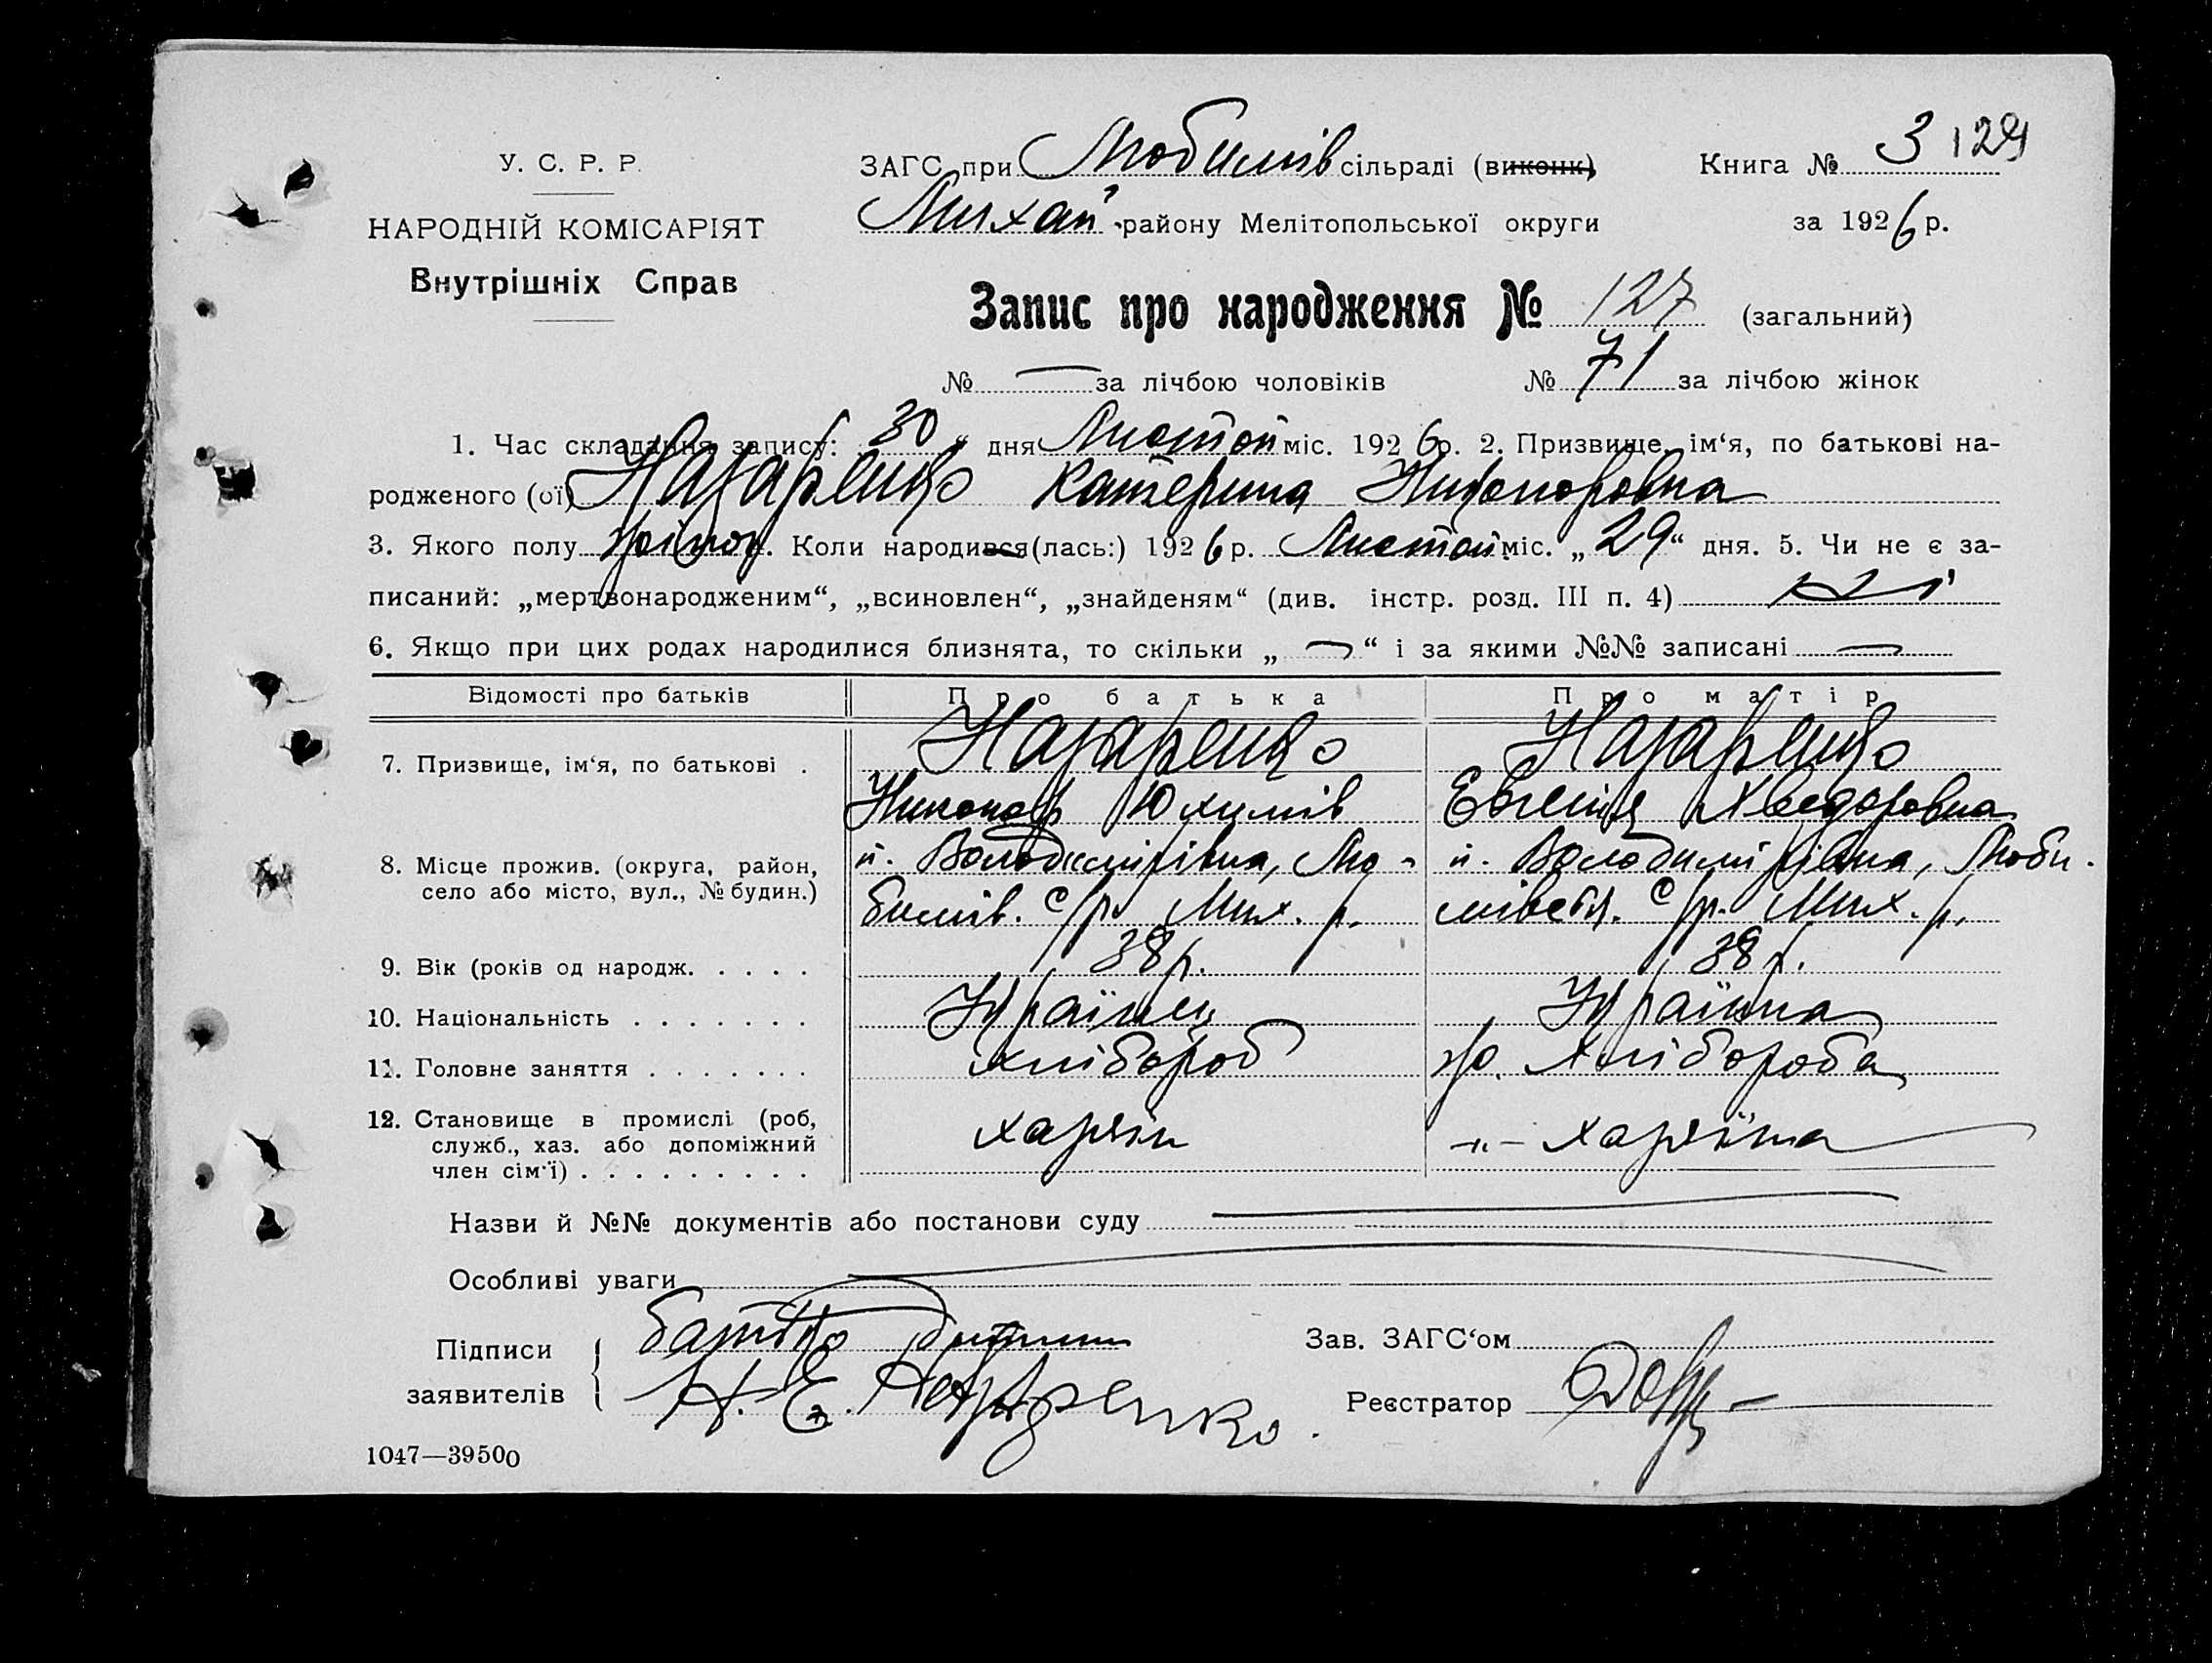 У. С. Р. Р.
НАРОДНІЙ КОМІСАРІЯТ
Внутрішніх Справ
ЗАГС при Любимів сільраді (виконк)
Михай району Мелітопольської округи
Книга № 3 129
за 1926 р.
Запис про народження № 127 (загальний)
№ — за лічбою чоловіків № 71 за лічбою жінок
1. Час складання запису: 30 " дня Листоп міс. 1926 р. 2. Призвище, ім‘я, по батькові на-
родженого (ої) Назаренко Катерина Никоноровна
3. Якого полу жіноч. Коли народився (лась:) 1926 р. Листоп міс. „29“ дня. 5. Чи не є за-
писаний: „мертвонародженим“, „всиновлен“, „знайденям“ (див. інстр. розд. III п. 4)
6. Якщо при цих родах народилися близнята, то скільки „ — “ і за якими №№ записані —
Відомості про батьків Про батька Про матір
7. Призвище, ім‘я, по батькові . Назаренко Назаренко
Никонор Юхимів Евгения Хведоровна
8. Місце прожив. (округа, район, п. Володимирівна, Лю- п. Володимирівна, Люби-
село або місто, вул., № будин.) бимів. с/р. Мих. р. мівськ. с/р. Мих. р.
9. Вік (років од народж. . . . . 38 р. 38 р.
10. Національність . . . . . . . Українец Українка
11. Головне заняття . . . . . . . хлібороб ж. хлібороба
12. Становище в промислі (роб, служб., хаз. або допоміжний член сім‘ї) . . . . . . . . .
Назви й №№ документів або постанови суду
Особливі уваги
Підписи заявителів батько дитини
Н. Е. Назаренко.
Зав. ЗАГС‘ом
Реєстратор
1047—39500